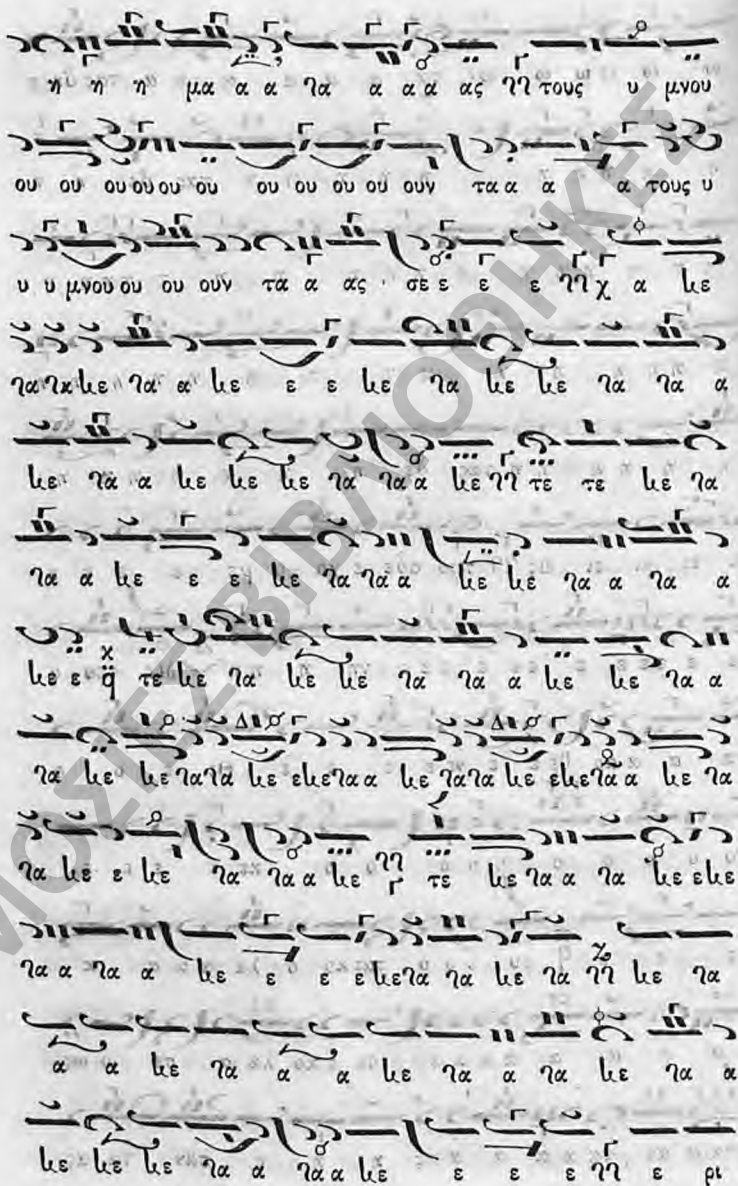 η η η μα α α λα α α α ας λλ τους υ μνου
ου ου ου ου ου ου ου ου ου ου ουν τα α α α τους υ
υ υ μνου ου ου ουν τα α ας σε ε ε ε λλ χ α κε
λα λα κε λα α κε ε ε κε λα κε κε λα λα α
κε λα α κε κε κε λα λα α κε λλ τε τε κε λα
λα α κε ε ε κε λα λα α κε κε λα α λα α
κε ε χ q τε κε λα κε κε λα λα α κε κε λα α
λα κε κε λα λα κε ε κε λα α κε λα λα κε ε κε λα α κε λα
λα κε ε κε λα λα α κε λλ τε κε λα α λα κε ε κε
λα α λα α κε ε ε ε κε λα λα κε λα λλ κε λα
α α κε λα α α κε λα α λα κε λα α
κε κε κε λα α λα α κε ε ε ε λλ ε ρι
ΜΟΣΙΕΣ ΒΙΒΛΙΟΘΗΚΕΣ